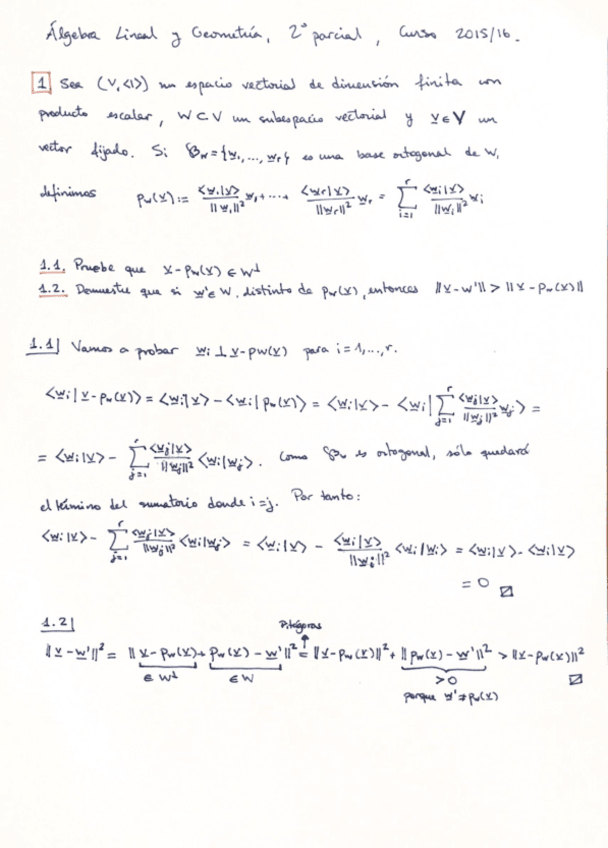 Álgebra Lineal y Geometría, 2º parcial, Curso 2015/16.
1 Sea (V,<|>) un espacio vectorial de dimensión finita con
producto escalar, W⊂V un subespacio vectorial y v∈V un
vector fijado. Si B_W={w₁,...,w_r} es una base ortogonal de W,
definimos p_W(v):= <w₁|v>/||w₁||² w₁+....+ <w_r|v>/||w_r||² w_r = ∑_{i=1}^{r} <w_i|v>/||w_i||² w_i
1.1. Pruebe que v-p_W(v)∈W^⊥
1.2. Demuestre que si w'∈W, distinto de p_W(v), entonces ||v-w'||>||v-p_W(v)||
1.1| Vamos a probar w_i⊥v-p_W(v) para i=1,...,r.
<w_i|v-p_W(v)>=<w_i|v>-<w_i|p_W(v)>=<w_i|v>-<w_i|∑_{j=1}^{r} <w_j|v>/||w_j||² w_j>=
=<w_i|v>-∑_{j=1}^{r} <w_j|v>/||w_j||² <w_i|w_j>. Como B_W es ortogonal, sólo quedará
el término del sumatorio donde i=j. Por tanto:
<w_i|v>-∑_{j=1}^{r} <w_j|v>/||w_j||² <w_i|w_j> = <w_i|v> - <w_i|v>/||w_i||² <w_i|w_i> = <w_i|v>-<w_i|v>
=0 ☑
1.2|
Pitágoras
||v-w'||²= ||v-p_W(v)+p_W(v)-w'||²=||v-p_W(v)||²+||p_W(v)-w'||²>||v-p_W(v)||²
∈W^⊥ ∈W >0 ☑
porque w'≠p_W(v)